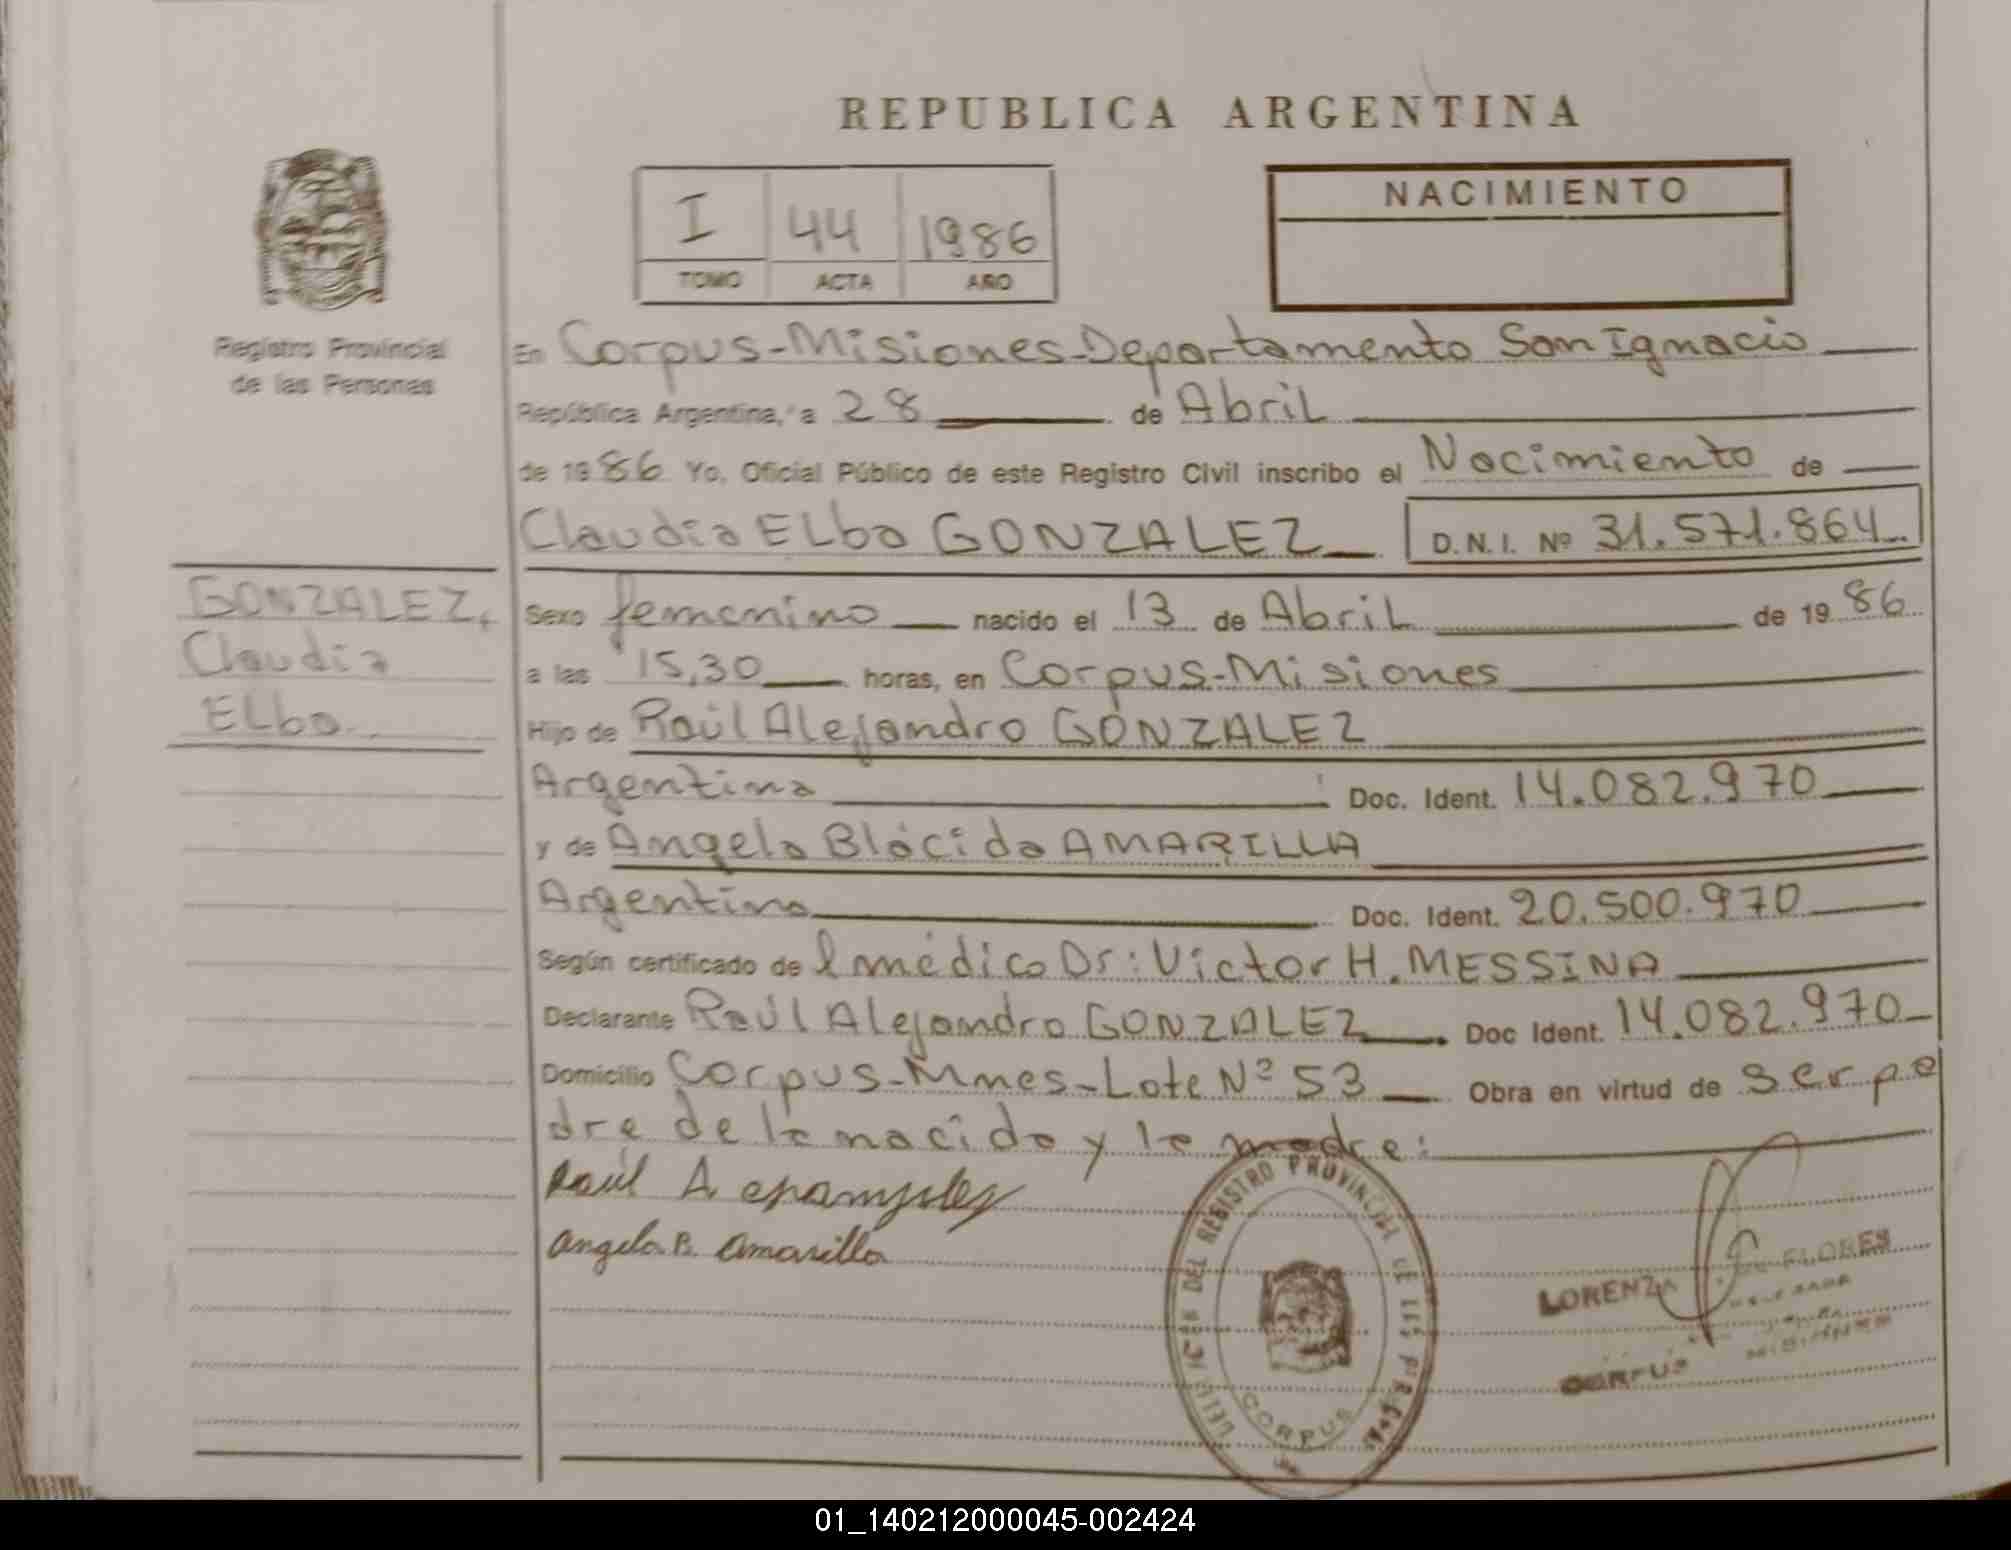 REPUBLICA ARGENTINA
I 44 1986
TOMO ACTA AÑO
NACIMIENTO
Registro Provincial
de las Personas
En Corpus-Misiones-Departamento San Ignacio
República Argentina, a 28 de Abril
de 1986 Yo, Oficial Público de este Registro Civil inscribo el Nacimiento de
Claudia ELba GONZALEZ D.N.I. Nº 31.571.864
GONZALEZ,
Claudia
ELba
Sexo femenino nacido el 13 de Abril de 1986
a las 15,30 horas, en Corpus-Misiones
Hijo de Raúl Alejandro GONZALEZ
Argentina Doc. Ident. 14.082.970
y de Angela Blácida AMARILLA
Argentina Doc. Ident. 20.500.970
Según certificado de l médico Dr: Victor H. MESSINA
Declarante Raúl Alejandro GONZALEZ Doc Ident. 14.082.970
Domicilio Corpus-Mnes-Lote Nº 53 Obra en virtud de ser pa
dre de la nacida y la madre:
Raúl A
Angela B. Amarilla
DEL REGISTRO PROVINCIAL DE LAS PERSONAS
CORPUS
LORENZA FLORES
CORPUS MISIONES
01_140212000045-002424